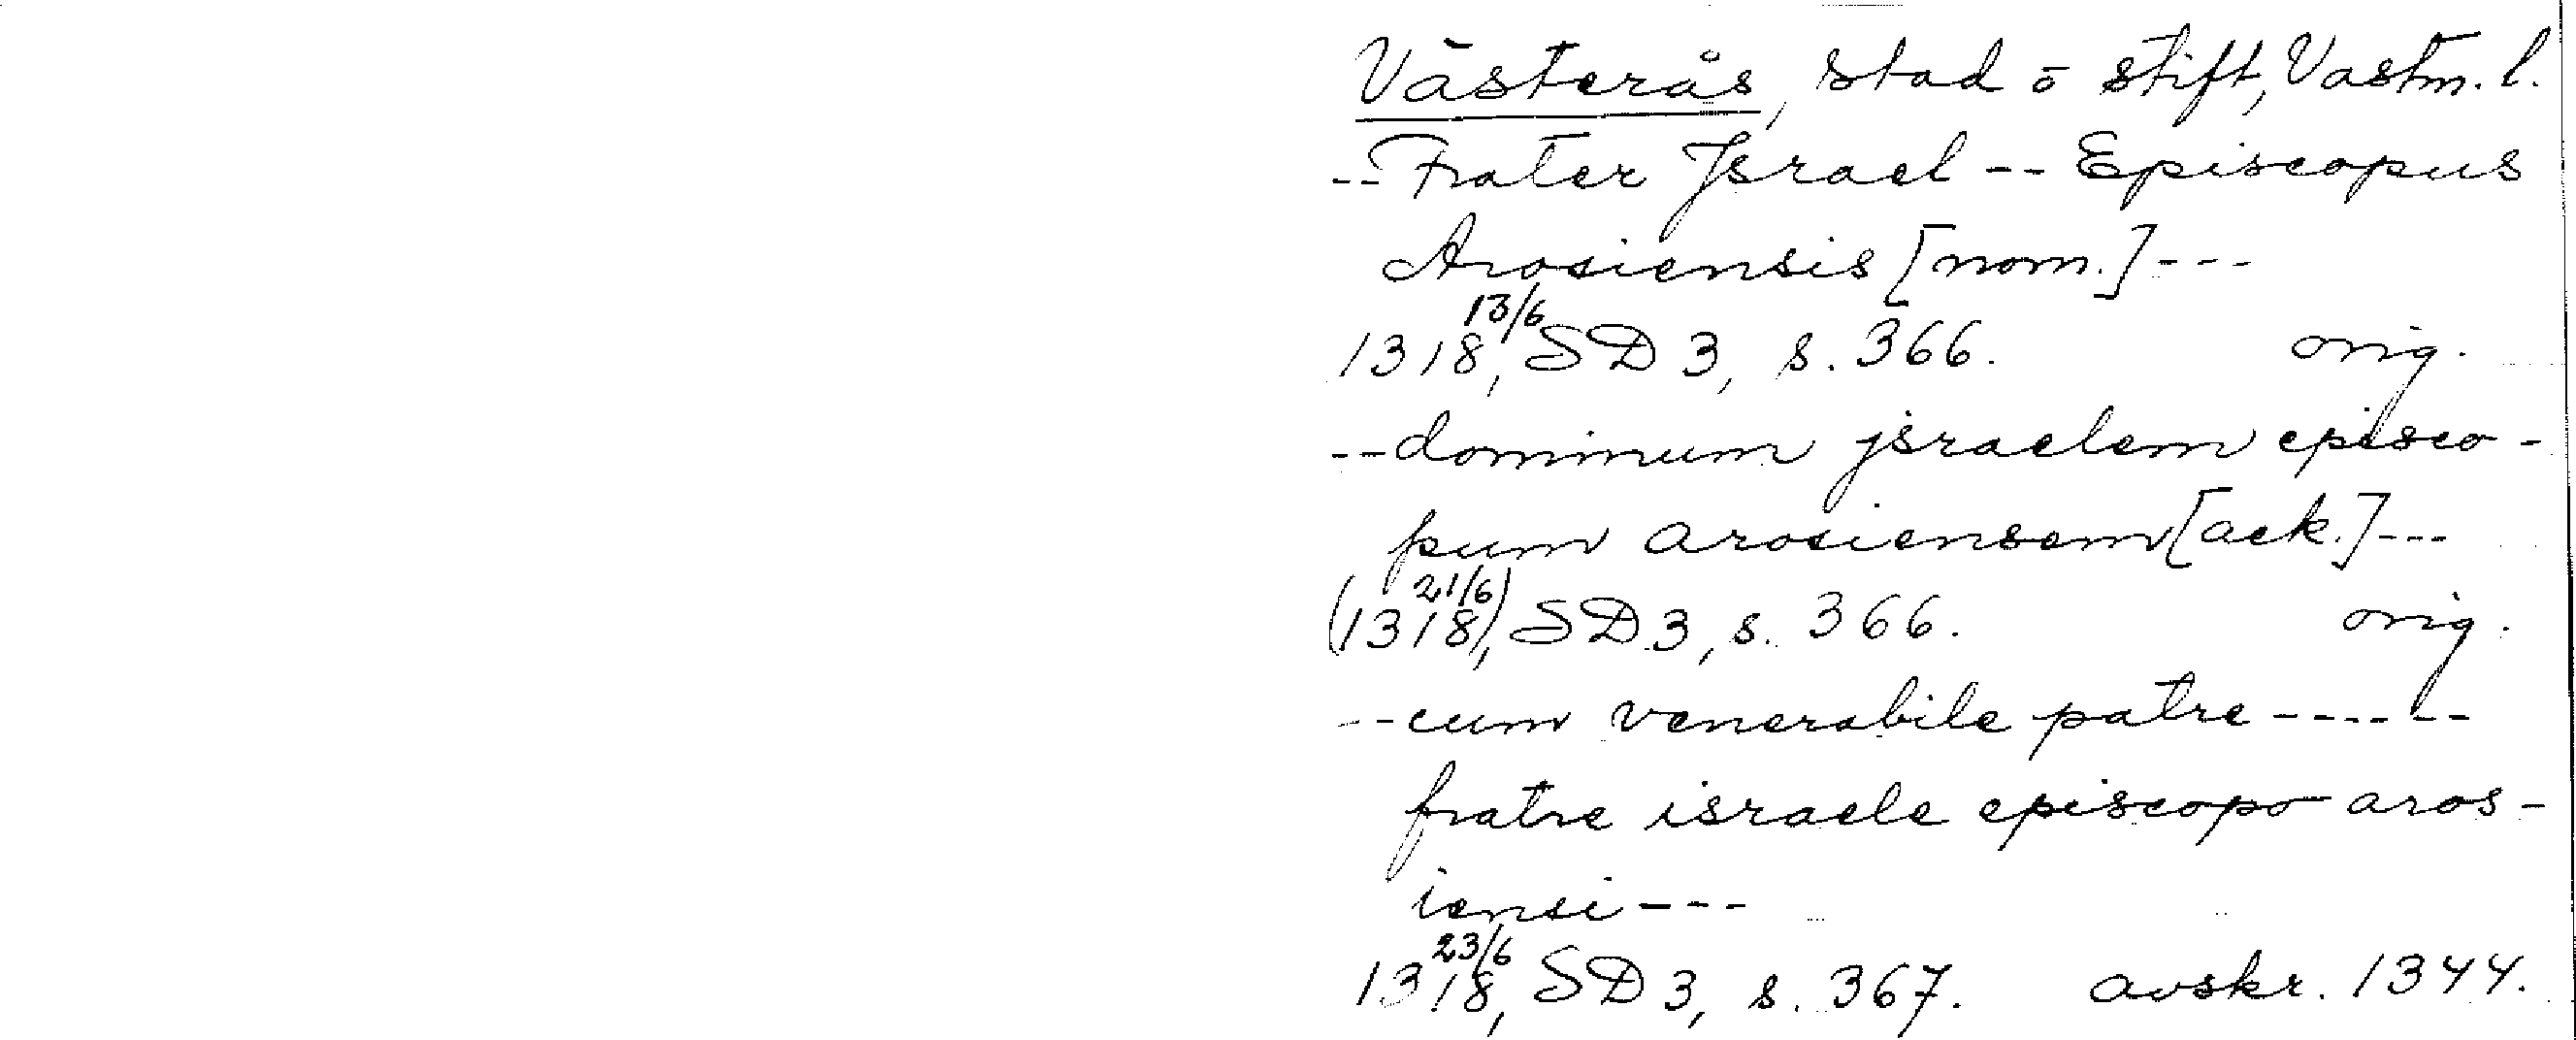 Västerås, stad o stift, Vastm. l.
-- Frater Jsrael -- Episcopus
Arosiensis [nom.] ---
1318 13/6, SD 3, s. 366. orig.
-- dominum jsraelem episco-
pum arosiensem [ack.] ---
(1318 21/6), SD 3, s. 366. orig.
-- cum venerabile patre ------
fratre israele episcopo aros-
iensi ---
1318 23/6, SD 3, s. 367. avskr. 1344.